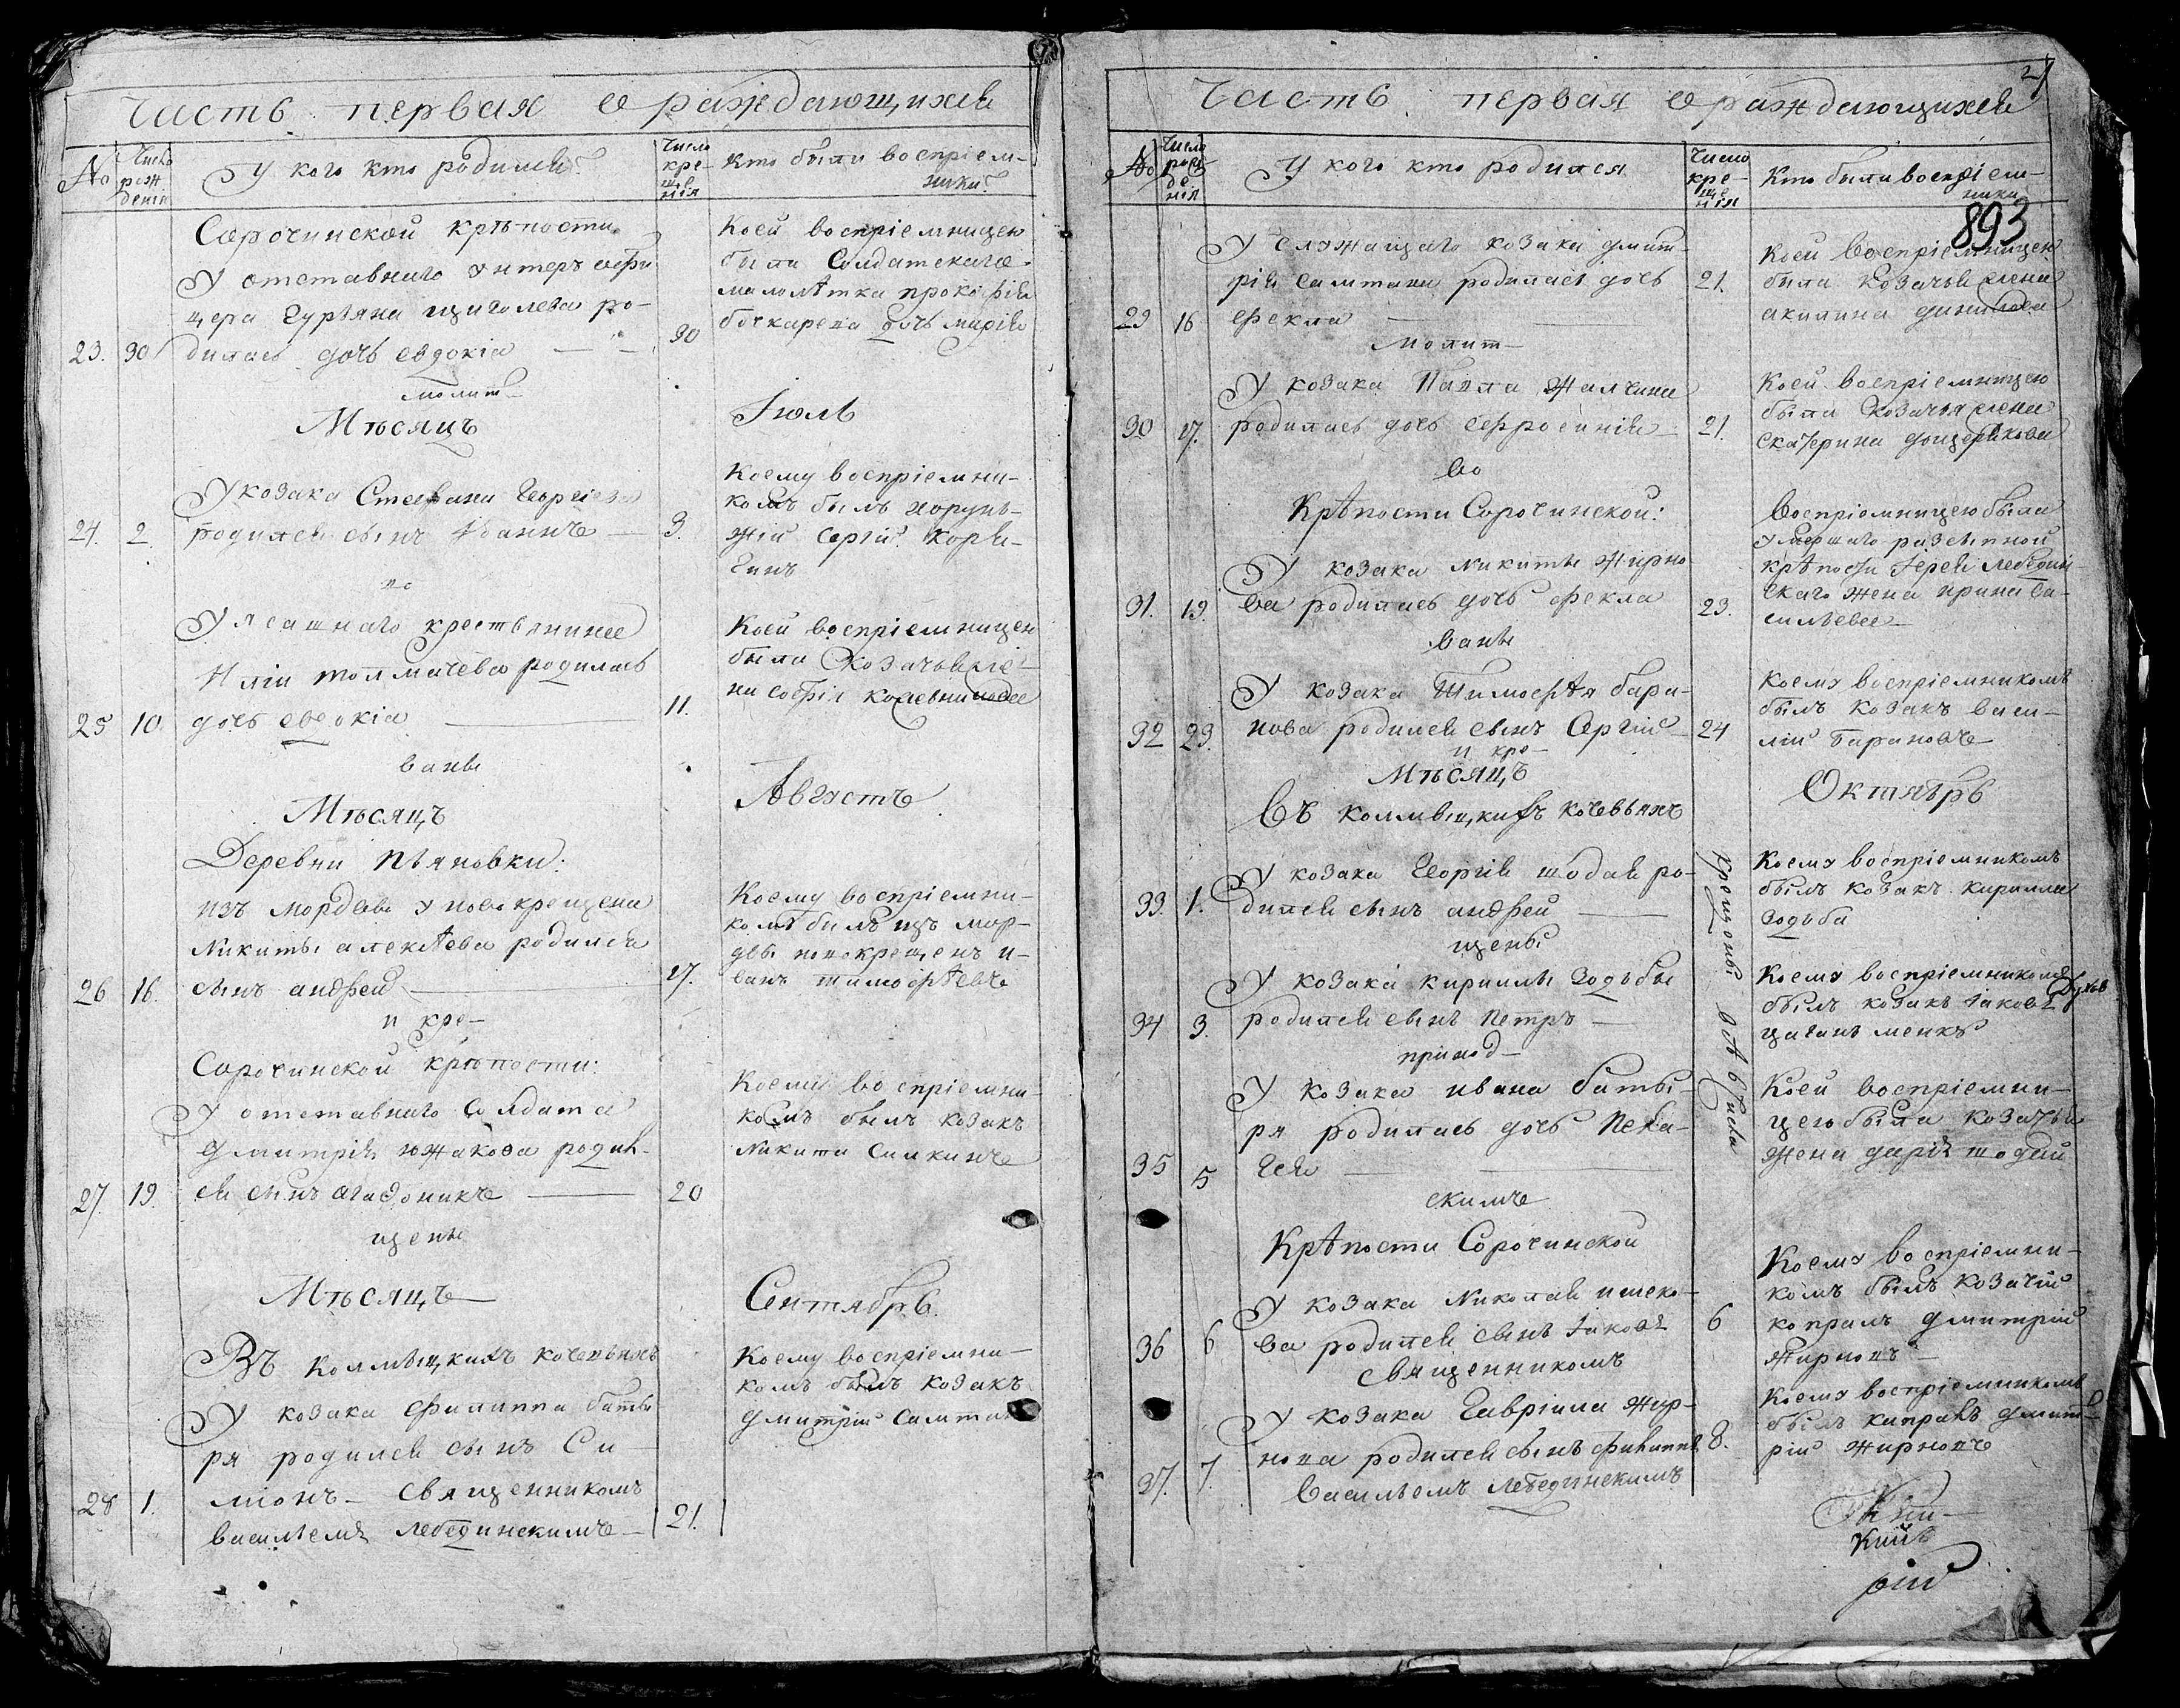 Часть первая о раждающихся
№
Число рождения
У кого кто родился
Число крещения
Кто были воспріемники
Сорочинской крѣпости
У отставнаго унтеръ офи
цера Гурьяна щиголева ро-
23. 30 дилась дочь евдокіа 30
молит-
Коей воспріемницею
была Солдатскаго
малолѣтка прокофія
бочкарева дочь марія
Мѣсяцъ Іюль
У козака Стефана Георгіева
24. 2. родился сынъ Іоаннъ 3.
во
Коему воспріемни-
комъ былъ хорун-
жій Сергій Коря-
гинъ
У ясашнаго крестьянина
Иліи толмачева родилась
25 10 дочь евдокіа 11.
ваны
Коей воспріемницею
была Козачья же-
на софія
Мѣсяцъ Августъ
Деревни Пьяновки:
изъ мордвы у новокрещена
Никиты алексѣева родился
26 16. сынъ андрей 17.
и кре-
Коему воспріемни-
комъ былъ изъ мор-
двы новокрещенъ и-
ванъ тимофѣевъ
Сорочинской крѣпости:
У отставнаго Солдата
Дмитрія южакова родил-
27. 19. ся сынъ агафоникъ 20
щены
Коему воспріемни-
комъ былъ козакъ
Никита Силкинъ
Мѣсяцъ Сентябрь.
Въ Колмыцкихъ кочевьяхъ
У козака филиппа баты
ря родился сынъ Си-
28 1. міонъ – Священникомъ
василіемъ лебединскимъ 21.
Коему воспріемни-
комъ былъ козакъ
Дмитрій
21
Часть первая о раждающихся
№
Число рожденія
У кого кто родился
Число крещенія
Кто были воспріемники
893
У служащаго козака дмит-
рія салтана родилась дочь 21.
29 16 фекла
молит-
Коей воспріемницею
была Козачья жена
акилина
У козака Павла Жалчина
30 17. родилась дочь Ефросинія 21.
во
Коей воспріемницею
была Козачья жена
Екатерина
Крѣпости Сорочинской:
У козака никиты жирно
31. 19. ва родилась дочь фекла 23.
ваны
Воспріемницею была
умершаго разсыпной
крѣпости Іерея лебедин
скаго жена ирина ва-
сильева
У козака Тимофѣя бара-
32 23. нова родился сынъ Сергій 24
и кре-
Коему воспріемникомъ
былъ козакъ васи-
лій барановъ
Мѣсяцъ Октябрь
Въ колмыцкихъ кочевьяхъ
У козака Георгія шодая ро-
33. 1. дился сынъ андрей
щены
Коему воспріемникомъ
былъ козакъ кирилла
зодьба
крещены
У козака кириллы зодьбы
34 3. родился сынъ Петръ
Коему воспріемникомъ
былъ козакъ Іаковъ
У козака ивана баты-
ря родилась дочь Пела-
35 5 гея
скимъ
Коей воспріемни-
цею была козачья
жена дарія шодай
Крѣпости Сорочинской
У козака Николая
36 6 ва родился сынъ Іаковъ 6
Священникомъ
Коему воспріемни-
комъ былъ козачій
копралъ дмитрій
жирновъ
У козака Гавріила жир-
37. 7. нова родился сынъ филиппъ 8.
Василіемъ лебединскимъ
Коему воспріемникомъ
былъ капралъ дмит-
рій жирновъ